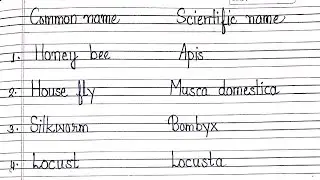 Common name Scientific name
1. Honey bee Apis
2. House fly Musca domestica
3. Silkworm Bombyx
4. Locust Locusta